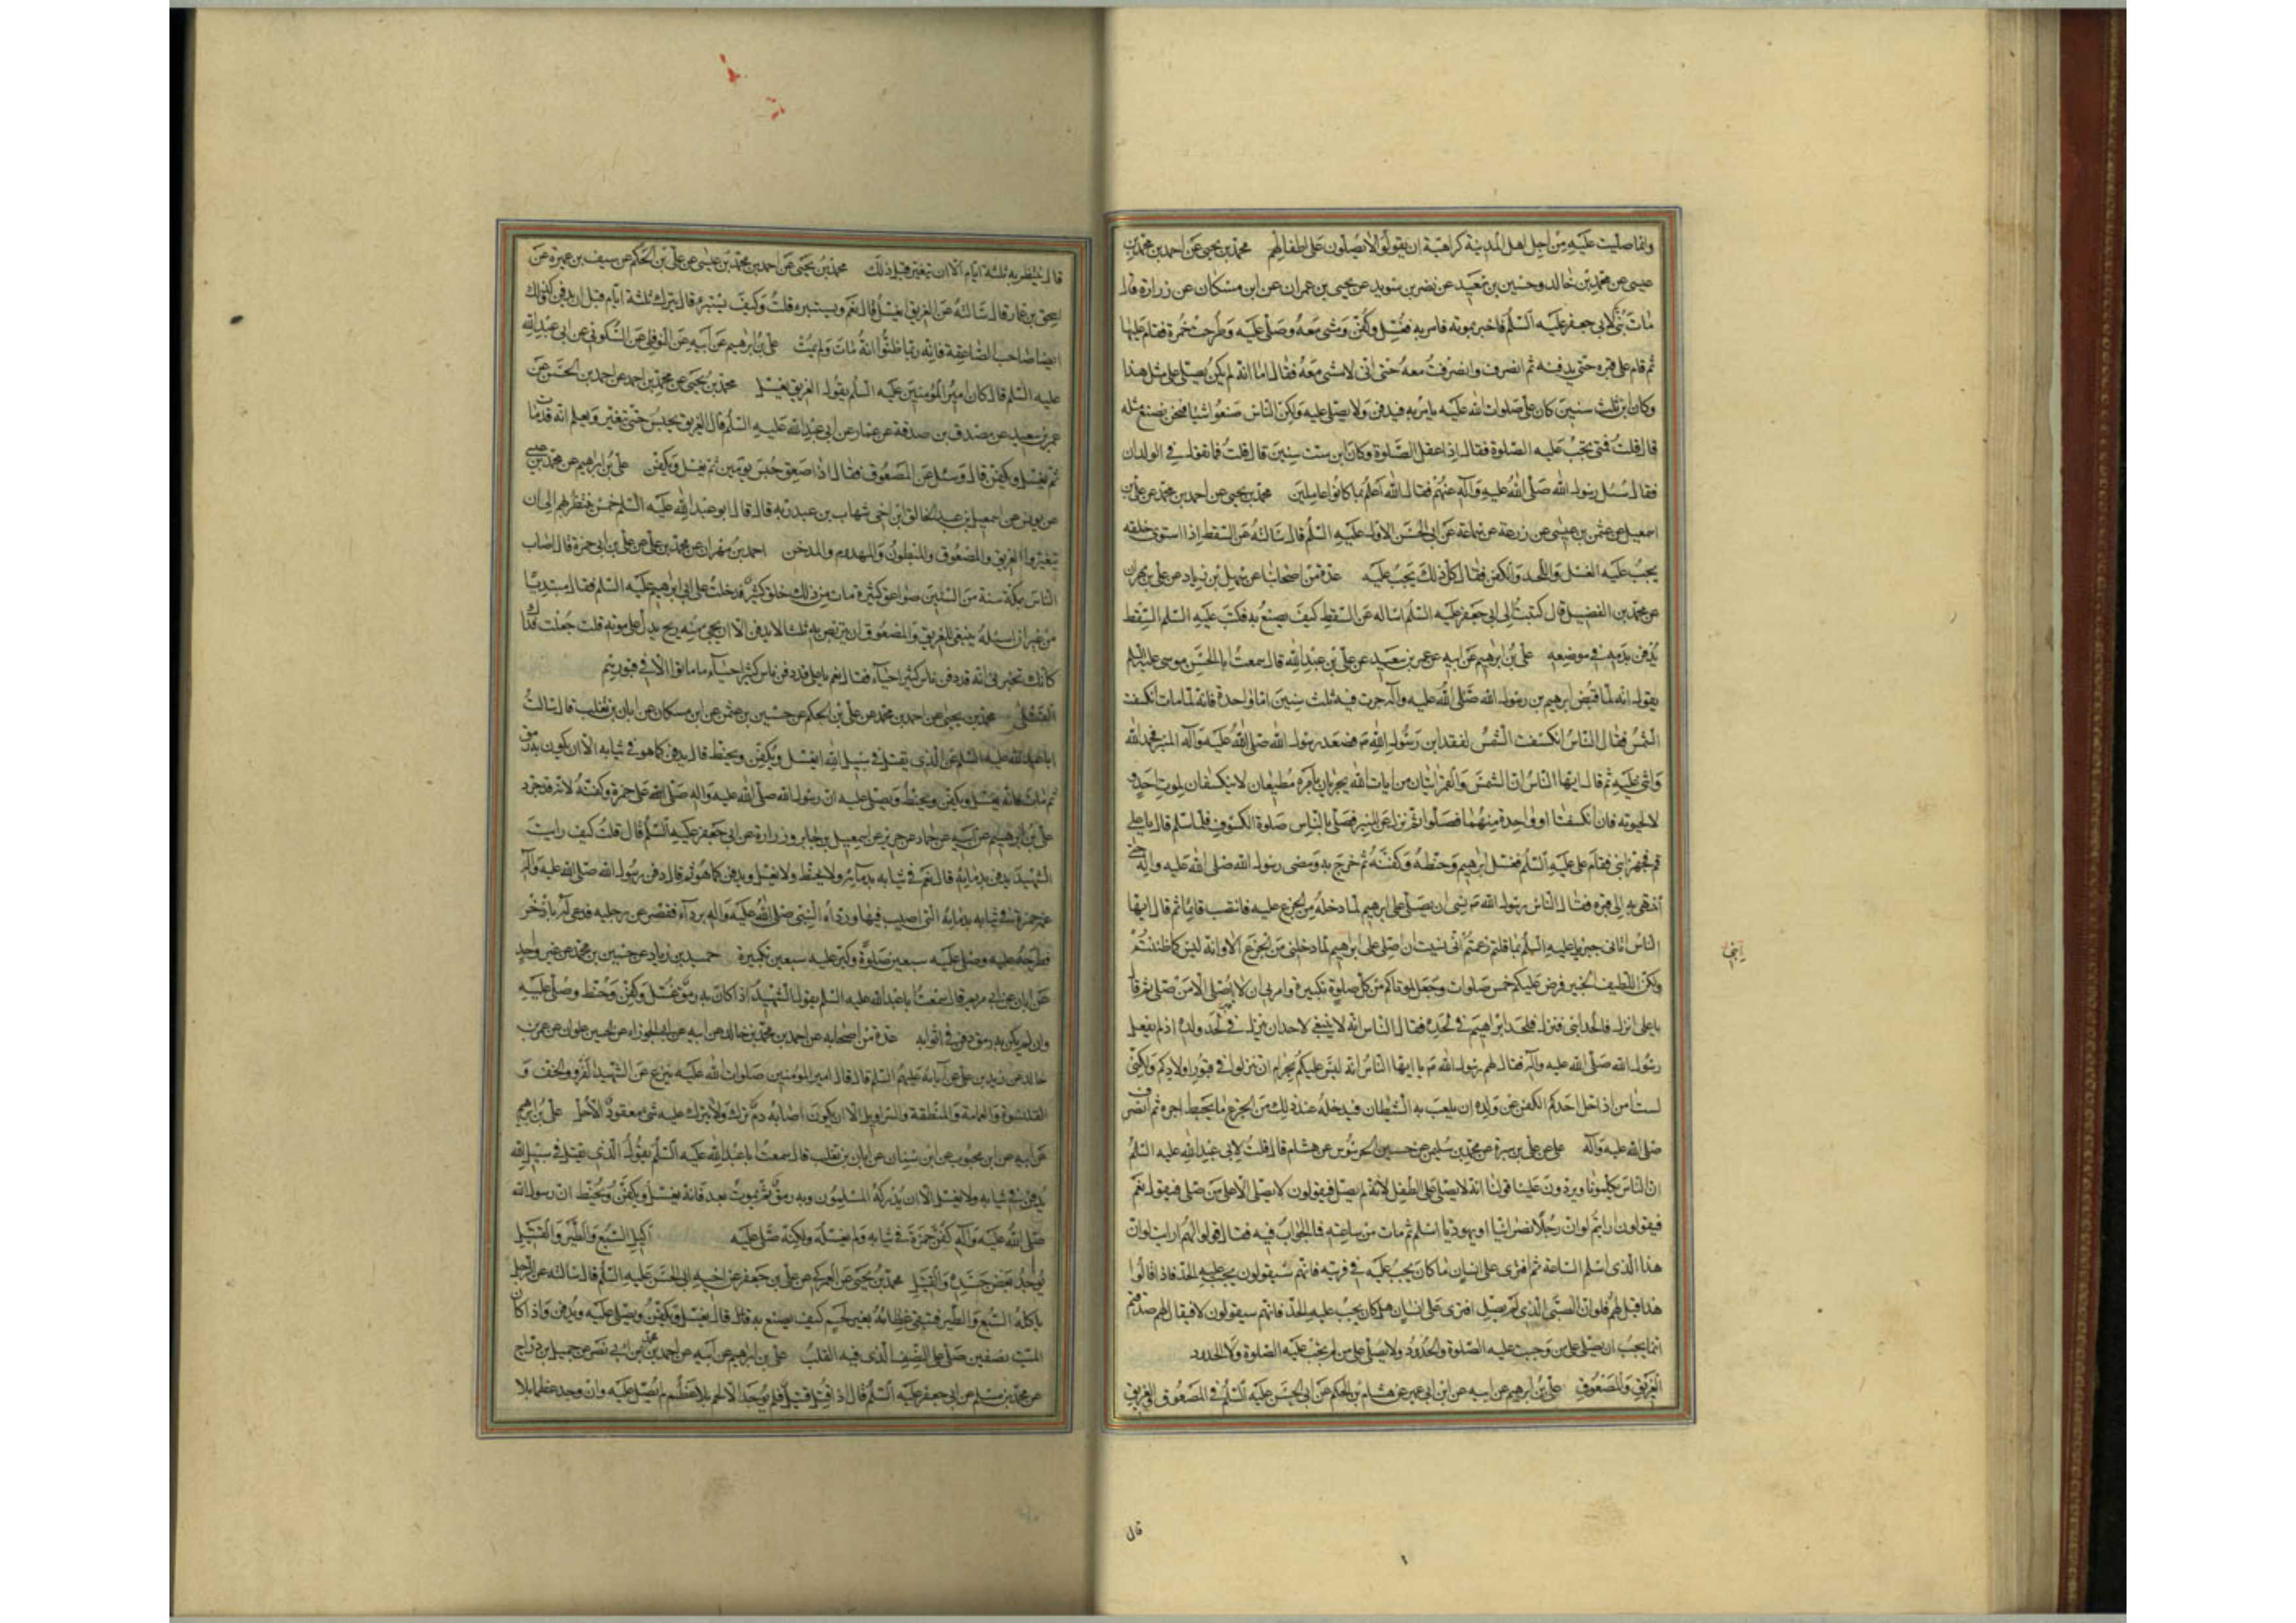 وانما صليت عليه من اجل اهل المدينة كراهية ان يقولوا لا يصلون على اطفالهم محمد بن يحيى عن احمد بن محمد بن
عيسى عن محمد بن خالد وحسين بن سعيد عن نضر بن سويد عن يحيى بن عمران عن ابن مسكان عن زرارة قال
مات بُنَيّ لابي جعفر عليه السلم فاخبر بموته فامر به فغسل وكفن ومشى معه وصلى عليه وطرحت خمرة فقام عليها
ثم قام على قبره حتى يدفنه ثم انصرف وانصرفت معه حتى اني لامشي معه فقال اما انه لم يكن يصلى على مثل هذا
وكان ابن ثلث سنين كان علي صلوات الله عليه يامر به فيدفن ولا يصلى عليه ولكن الناس صنعوا شيئا فنحن نصنع مثله
قال قلت فمتى يجب عليه الصلوة فقال اذا عقل الصلوة وكان ابن ست سنين قال قلت فما تقول في الولدان
فقال سئل رسول الله صلى الله عليه وآله عنهم فقال الله اعلم بما كانوا عاملين محمد بن يحيى عن احمد بن محمد عن علي بن
اسمعيل عن عثمن بن عيسى عن زرعة عن سماعة عن ابي الحسن الاول عليه السلم قال سالته عن السقط اذا استوى خلقه
يجب عليه الغسل واللحد والكفن فقال كل ذلك يجب عليه عدة من اصحابنا عن سهل بن زياد عن علي بن مهران
عن محمد بن الفضيل قال كتبت الى ابي جعفر عليه السلم اساله عن السقط كيف يصنع به فكتب عليه السلم السقط
يدفن بدمه في موضعه علي بن ابرهيم عن ابيه عن عمر بن سعيد عن علي بن عبد الله قال سمعت ابا الحسن موسى عليه السلم
يقول انه لما قبض ابرهيم بن رسول الله صلى الله عليه وآله جرت فيه ثلث سنين اما واحدة فانه لما مات انكسفت
الشمس فقال الناس انكسفت الشمس لفقد ابن رسول الله ص فصعد رسول الله صلى الله عليه وآله المنبر فحمد الله
واثنى عليه ثم قال ايها الناس ان الشمس والقمر ايتان من ايات الله يجريان بامره مطيعان لا ينكسفان لموت احد و
لا لحيوته فان انكسفتا او واحدة منهما فصلوا ثم نزل عن المنبر فصلى بالناس صلوة الكسوف فلما سلم قال يا علي
قم فجهز ابني فقام علي عليه السلم فغسل ابرهيم وحنطه وكفنه ثم خرج به ومضى رسول الله صلى الله عليه وآله حتى
انتهى به الى قبره فقال الناس رسول الله ص نسي ان يصلي على ابرهيم لما دخله من الجزع عليه فانتصب قائما ثم قال ايها
الناس اتاني جبريل عليه السلم بما قلتم زعمتم اني نسيت ان اصلي على ابرهيم لما دخلني من الجزع الا وانه ليس كما ظننتم
ابني
ولكن اللطيف الخبير فرض عليكم خمس صلوات وجعل لموتاكم من كل صلوة تكبيرة وامرني ان لا اصلي الا من صلى ثم قال
يا علي انزل فالحد ابني فنزل فلحد ابراهيم في لحده فقال الناس انه لا ينبغي لاحد ان ينزل في لحد ولده اذ لم يفعل
رسول الله صلى الله عليه وآله فقال لهم رسول الله ص يا ايها الناس انه ليس عليكم بحرام ان تنزلوا في قبور اولادكم ولكني
لست امن اذا حل احدكم الكفن عن ولده ان يلعب به الشيطان فيدخله عند ذلك من الجزع ما يحبط اجره ثم انصرف
صلى الله عليه وآله علي عن علي بن سيرة عن محمد بن سليمن عن حسين الحرسوس عن هشام قال قلت لابي عبد الله عليه السلم
ان الناس يكلمونا ويردون علينا قولنا انه لا يصلى على الطفل لانه لم يصل فيقولون لا يصلى الا على من صلى فنقول نعم
فيقولون ارايتم لو ان رجلا نصرانيا او يهوديا اسلم ثم مات من ساعته فما الجواب فيه فقال قولوا لهم ارايت لو ان
هذا الذي اسلم الساعة ثم افترى على انسان ما كان يجب عليه في فريته فانهم سيقولون يجب عليه الحد فاذا قالوا
هذا قيل لهم فلو ان الصبي الذي لم يصل افترى على انسان هل كان يجب عليه الحد فانهم سيقولون لا فيقال لهم صدقتم
انما يجب ان يصلى على من وجبت عليه الصلوة والحدود ولا يصلى على من لم تجب عليه الصلوة ولا الحدود
الغريق والمصعوق علي بن ابرهيم عن ابيه عن ابن ابي عمير عن هشام بن الحكم عن ابي الحسن عليه السلم في المصعوق والغريق
قال
قال ينتظر به ثلثة ايام الا ان يتغير قبل ذلك محمد بن يحيى عن احمد بن محمد بن عيسى عن علي بن الحكم عن سيف بن عميرة عن
اسحق بن عمار قال سالته عن الغريق ايغسل قال نعم ويستبرء قلت وكيف يستبرء قال يترك ثلثة ايام قبل ان يدفن وكذلك
ايضا صاحب الصاعقة فانه ربما ظنوا انه مات ولم يمت علي بن ابرهيم عن ابيه عن النوفلي عن السكوني عن ابي عبد الله
عليه السلم قال كان امير المؤمنين عليه السلم يقول الغريق يغسل محمد بن يحيى عن محمد بن احمد عن احمد بن الحسن عن
عمر بن سعيد عن مصدق بن صدقة عن عمار عن ابي عبد الله عليه السلم قال الغريق يحبس حتى يتغير ويعلم انه قد مات
ثم يغسل ويكفن قال وسئل عن المصعوق فقال اذا صعق حبس يومين ثم يغسل ويكفن علي بن ابرهيم عن محمد بن عيسى
عن يونس عن اسمعيل بن عبد الخالق ابن اخي شهاب بن عبد ربه قال قال ابو عبد الله عليه السلم خمس ينتظر بهم الى ان
يتغيروا الغريق والمصعوق والمبطون والمهدوم والمدخن احمد بن مهران عن محمد بن علي عن علي بن ابي حمزة قال اصاب
الناس بمكة سنة من السنين صواعق كثيرة مات من ذلك خلق كثير فدخلت على ابي ابرهيم عليه السلم فقال مبتديا
من غير ان اسئله ينبغي للغريق والمصعوق ان يتربص به ثلثا لا يدفن الا ان يجيء منه ريح يدل على موته قلت جعلت فداك
كانك تخبرني انه قد دفن ناس كثير احياء فقال نعم يا علي قد دفن ناس كثير احياء ما ماتوا الا في قبورهم
القتلى محمد بن يحيى عن احمد بن محمد عن علي بن الحكم عن حسين بن عثمن عن ابن مسكان عن ابان بن تغلب قال سالت
ابا عبد الله عليه السلم عن الذي يقتل في سبيل الله ايغسل ويكفن ويحنط قال يدفن كما هو في ثيابه الا ان يكون به رمق
ثم مات فانه يغسل ويكفن ويحنط ويصلى عليه ان رسول الله صلى الله عليه وآله صلى على حمزة وكفنه لانه قد جرد
علي بن ابرهيم عن ابيه عن حماد عن حريز عن اسمعيل بن جابر وزرارة عن ابي جعفر عليه السلم قال قلت كيف رايت
الشهيد يدفن بدمائه قال نعم في ثيابه بدمائه ولا يحنط ولا يغسل ويدفن كما هو ثم قال دفن رسول الله صلى الله عليه وآله
عمه حمزة في ثيابه بدمائه التي اصيب فيها ورداه النبي صلى الله عليه وآله برداء فقصر عن رجليه فدعى له باذخر
فطرحه عليه وصلى عليه سبعين صلوة وكبر عليه سبعين تكبيرة حميد بن زياد عن حسين بن محمد عن غير واحد
عن ابان عن ابي مريم قال سمعت ابا عبد الله عليه السلم يقول الشهيد اذا كان به رمق غسل وكفن وحنط وصلى عليه
وان لم يكن به رمق دفن في اثوابه عدة من اصحابه عن احمد بن محمد بن خالد عن ابيه عن ابي الجوزاء عن الحسين علوان عن عمر بن
خالد عن زيد بن علي عن آبائه عليهم السلم قال قال امير المؤمنين صلوات الله عليه ينزع عن الشهيد الفرو والخف و
القلنسوة والعمامة والمنطقة والسراويل الا ان يكون اصابه دم ترك ولا يترك عليه شيء معقود الا حل علي بن ابرهيم
عن ابيه عن ابن محبوب عن ابن سنان عن ابان بن تغلب قال سمعت ابا عبد الله عليه السلم يقول الذي يقتل في سبيل الله
يدفن في ثيابه ولا يغسل الا ان يدركه المسلمون وبه رمق ثم يموت بعد فانه يغسل ويكفن ويحنط ان رسول الله
صلى الله عليه وآله كفن حمزة في ثيابه ولم يغسله ولكنه صلى عليه اكيل السبع والطير والقتيل
يوجد بعض جسده والقتيل محمد بن يحيى عن العمركي عن علي بن جعفر عن اخيه ابي الحسن عليه السلم قال سالته عن الرجل
ياكله السبع والطير فتبقى عظامه بغير لحم كيف يصنع به قال يغسل ويكفن ويصلى عليه ويدفن واذا كان
الميت نصفين صلى على النصف الذي فيه القلب علي بن ابرهيم عن ابيه عن احمد بن محمد بن ابي نصر عن جميل بن دراج
عن محمد بن مسلم عن ابي جعفر عليه السلم قال اذا قتل قتيل فلم يوجد الا لحم بلا عظم لم يصل عليه وان وجد عظم بلا